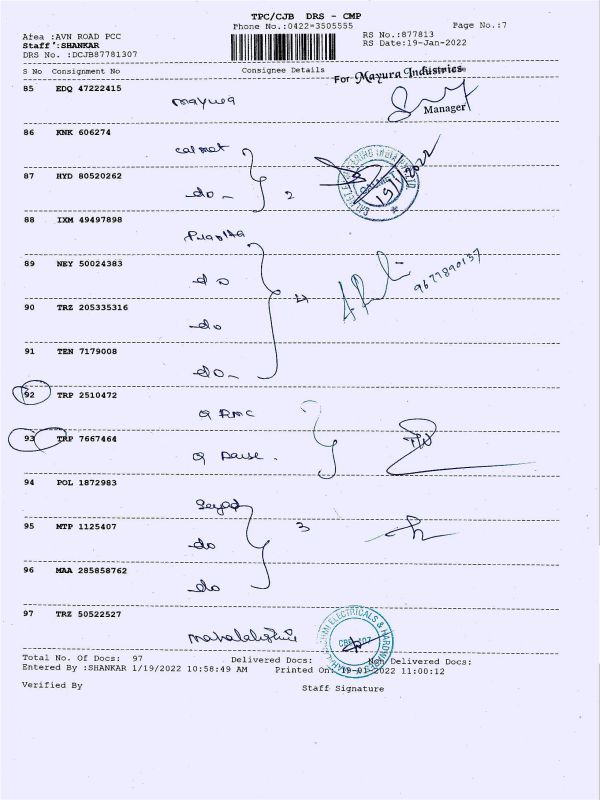 TPC/CJB DRS - CMP
Phone No.:0422-3505555
Page No.:7
Area :AVN ROAD PCC
RS No.:877813
Staff :SHANKAR
RS Date:19-Jan-2022
DRS No. :DCJB87781307
S No Consignment No Consignee Details
For Mayura Industries
85 EDQ 47222415
Mayura
Manager
86 KNK 606274
calmet
87 HYD 80520262
do - 2
19/1/2022
88 IXM 49497898
89 NEY 50024383
do 4
9677890137
90 TRZ 205335316
do
91 TEN 7179008
do -
92 TRP 2510472
93 TRP 7667464
94 POL 1872983
95 MTP 1125407
do 3
96 MAA 285858762
do
97 TRZ 50522527
Mahalakshmi
ELECTRICALS & HARDWARE
Total No. Of Docs: 97 Delivered Docs: Non Delivered Docs:
Entered By :SHANKAR 1/19/2022 10:58:49 AM Printed On: 19-01-2022 11:00:12
Verified By Staff Signature